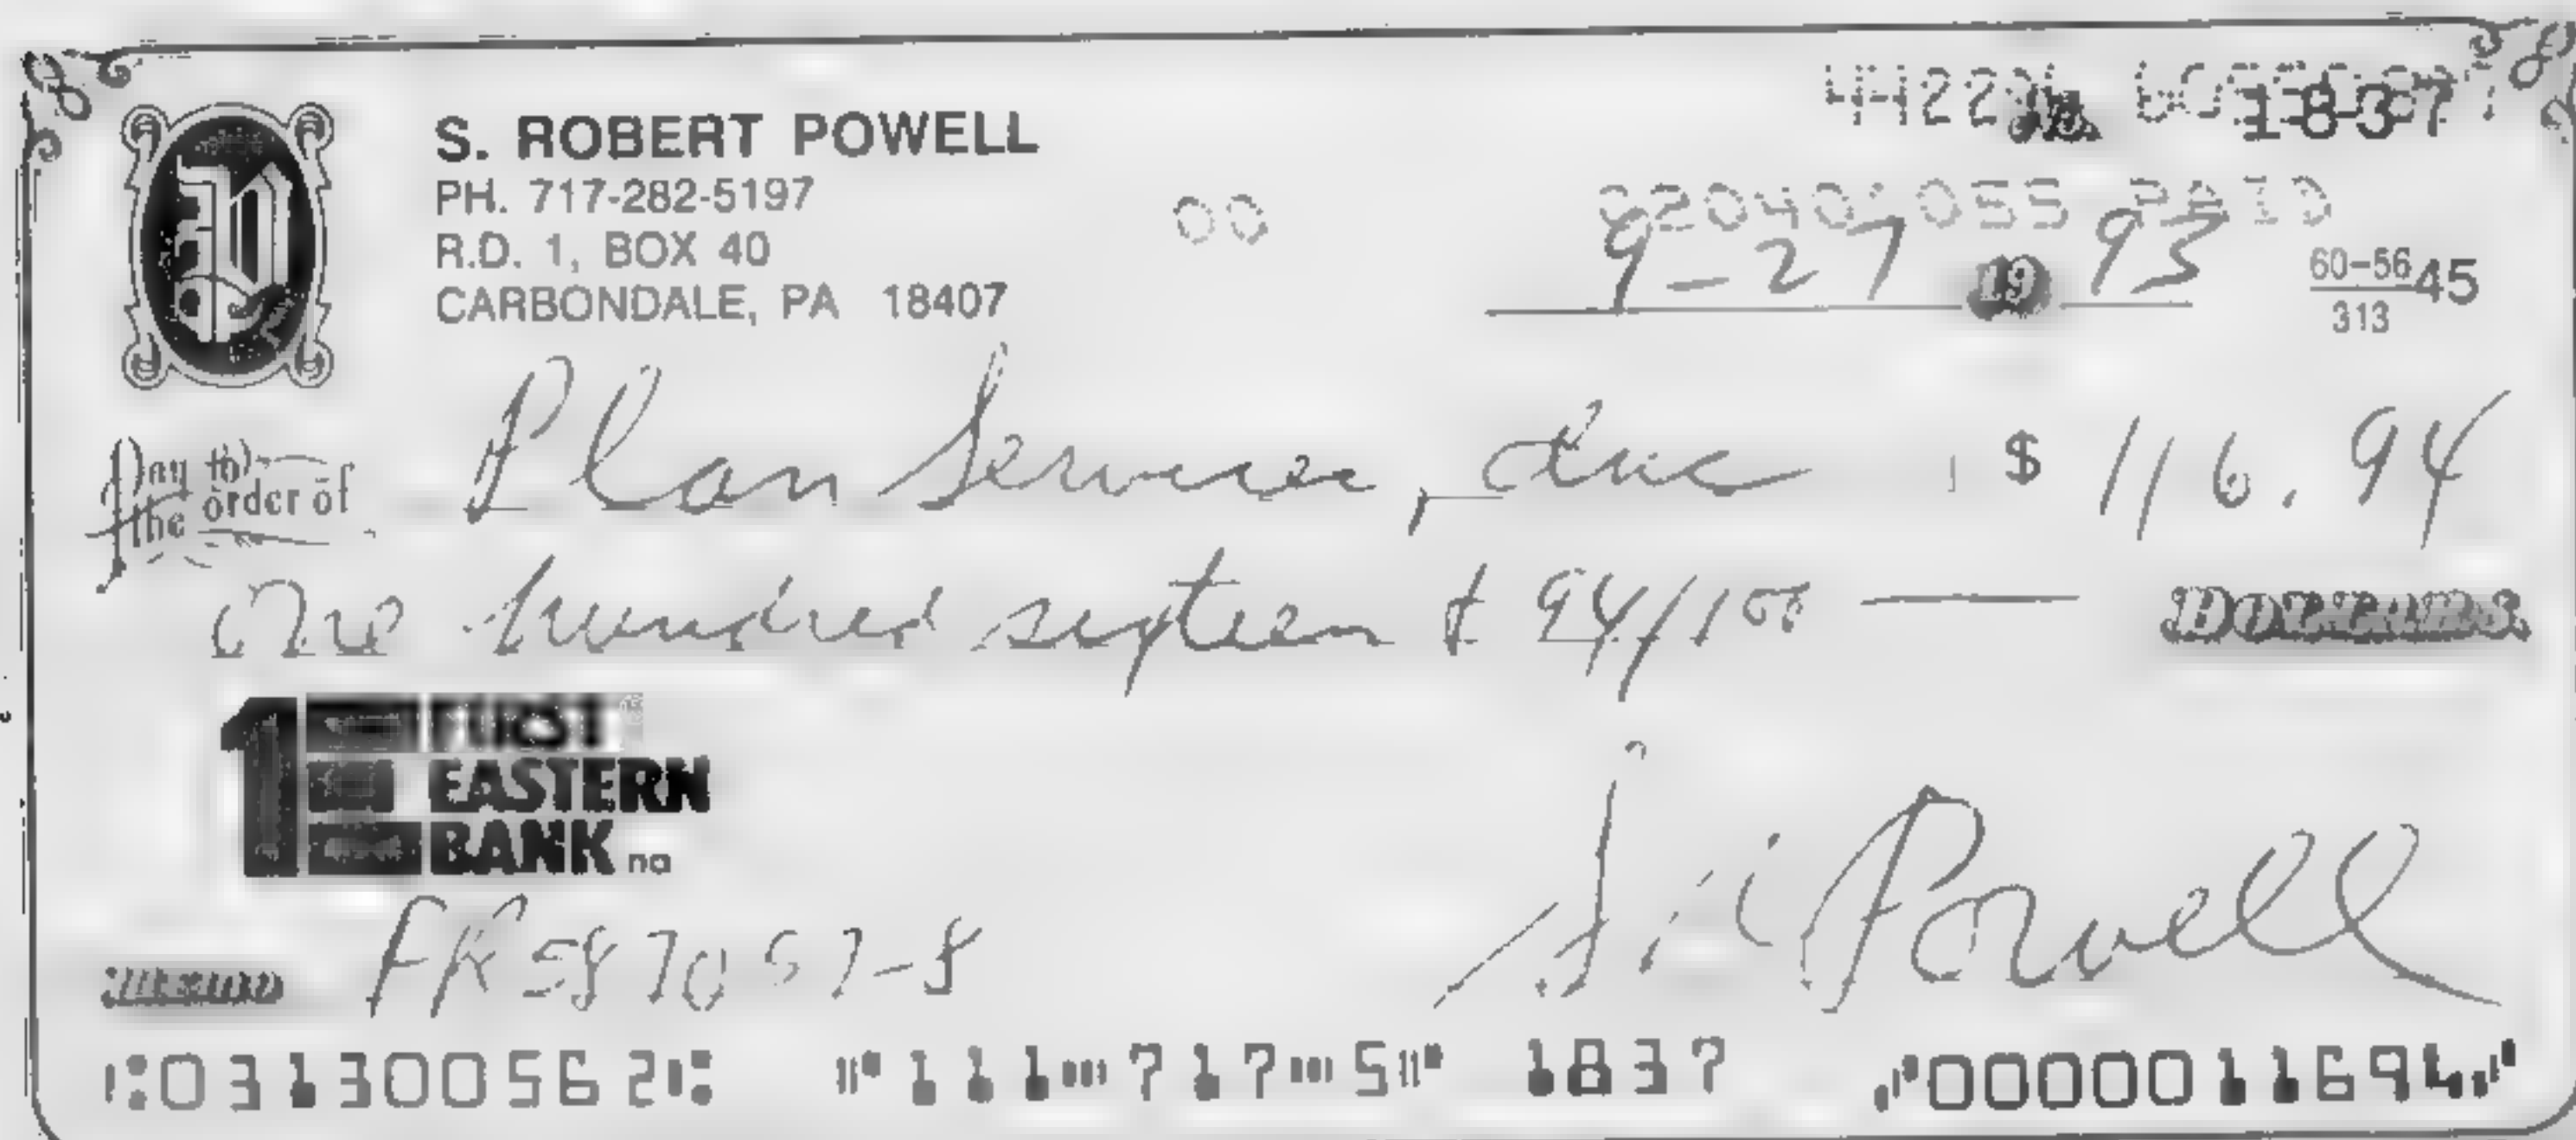 S. ROBERT POWELL
PH. 717-282-5197
R.D. 1, BOX 40
CARBONDALE, PA 18407
00
1837
PAID
9-27 19 93
60-56 45
313
Pay to the order of Plan Services, Inc $ 116.94
One hundred sixteen & 94/100 — DOLLARS
1E FIRST EASTERN BANK na
MEMO FR587057-8
S. R. Powell
⑆031300562⑆ ⑈111⑉717⑉5⑈ 1837 ⑇0000011694⑇